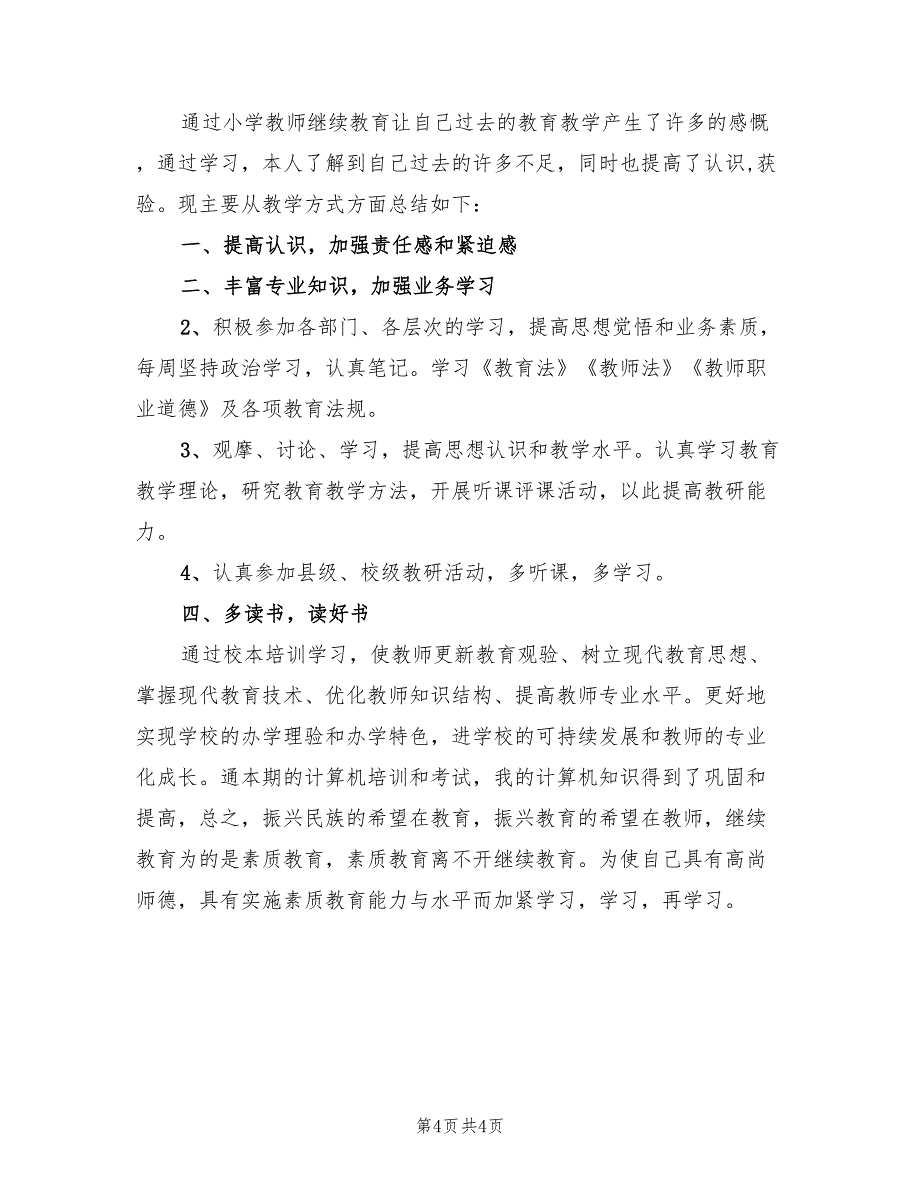 通过小学教师继续教育让自己过去的教育教学产生了许多的感慨
，通过学习，本人了解到自己过去的许多不足，同时也提高了认识,获
验。现主要从教学方式方面总结如下：
一、提高认识，加强责任感和紧迫感
二、丰富专业知识，加强业务学习
2、积极参加各部门、各层次的学习，提高思想觉悟和业务素质，
每周坚持政治学习，认真笔记。学习《教育法》《教师法》《教师职
业道德》及各项教育法规。
3、观摩、讨论、学习，提高思想认识和教学水平。认真学习教育
教学理论，研究教育教学方法，开展听课评课活动，以此提高教研能
力。
4、认真参加县级、校级教研活动，多听课，多学习。
四、多读书，读好书
通过校本培训学习，使教师更新教育观验、树立现代教育思想、
掌握现代教育技术、优化教师知识结构、提高教师专业水平。更好地
实现学校的办学理验和办学特色，进学校的可持续发展和教师的专业
化成长。通本期的计算机培训和考试，我的计算机知识得到了巩固和
提高，总之，振兴民族的希望在教育，振兴教育的希望在教师，继续
教育为的是素质教育，素质教育离不开继续教育。为使自己具有高尚
师德，具有实施素质教育能力与水平而加紧学习，学习，再学习。
第4页 共4页